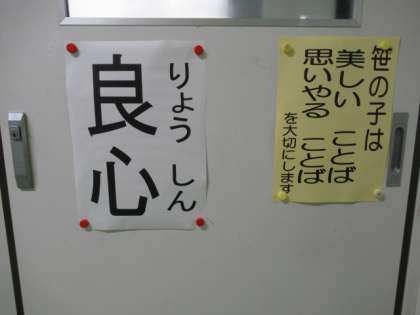 笹の子は
美しい ことば
思いやる ことば
を大切にします
りょう しん
良心